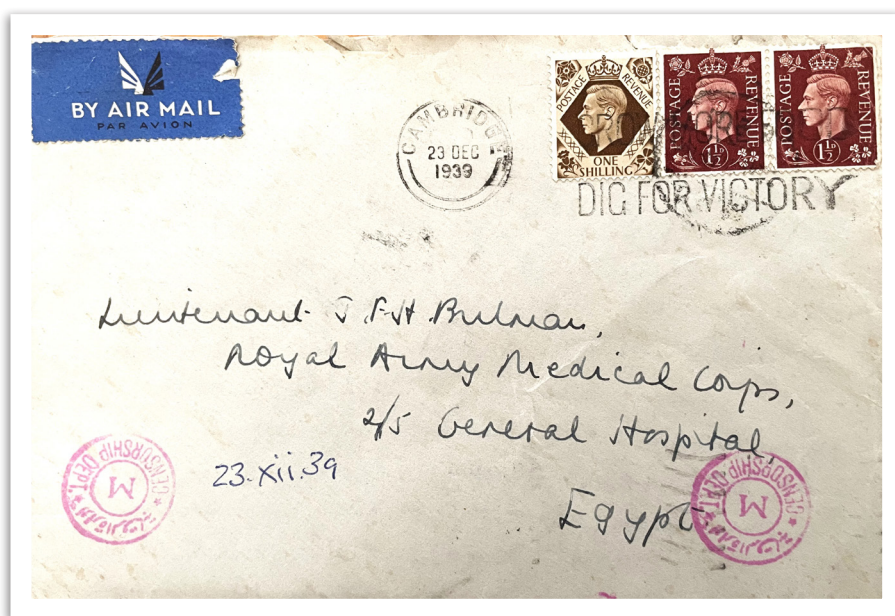 BY AIR MAIL
PAR AVION
CAMBRIDGE
23 DEC
1939
POSTAGE REVENUE
ONE
SHILLING
POSTAGE REVENUE
1½D
POSTAGE REVENUE
1½D
DIG FOR VICTORY
Lieutenant J.F.H. Bulman,
Royal Army Medical Corps,
2/5 General Hospital,
Egypt
23.xii.39
CENSORSHIP.DEPT.
M
CENSORSHIP.DEPT.
M